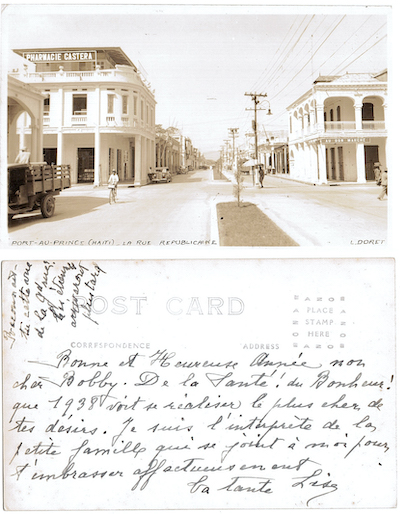 PHARMACIE CASTERA
AU BON MARCHÉ
PORT-AU-PRINCE (HAITI)_LA RUE REPUBLICAINE
L.DORET
POST CARD
CORRESPONDENCE
ADDRESS
PLACE
STAMP
HERE
de la
Bonne et Heureuse Année mon
cher Bobby. De la Santé! du Bonheur!
que 1938 voit se réaliser le plus cher de
tes désirs. Je suis l'interprète de la
petite famille qui se joint à moi pour
t'embrasser affectueusement
Ta tante Lise